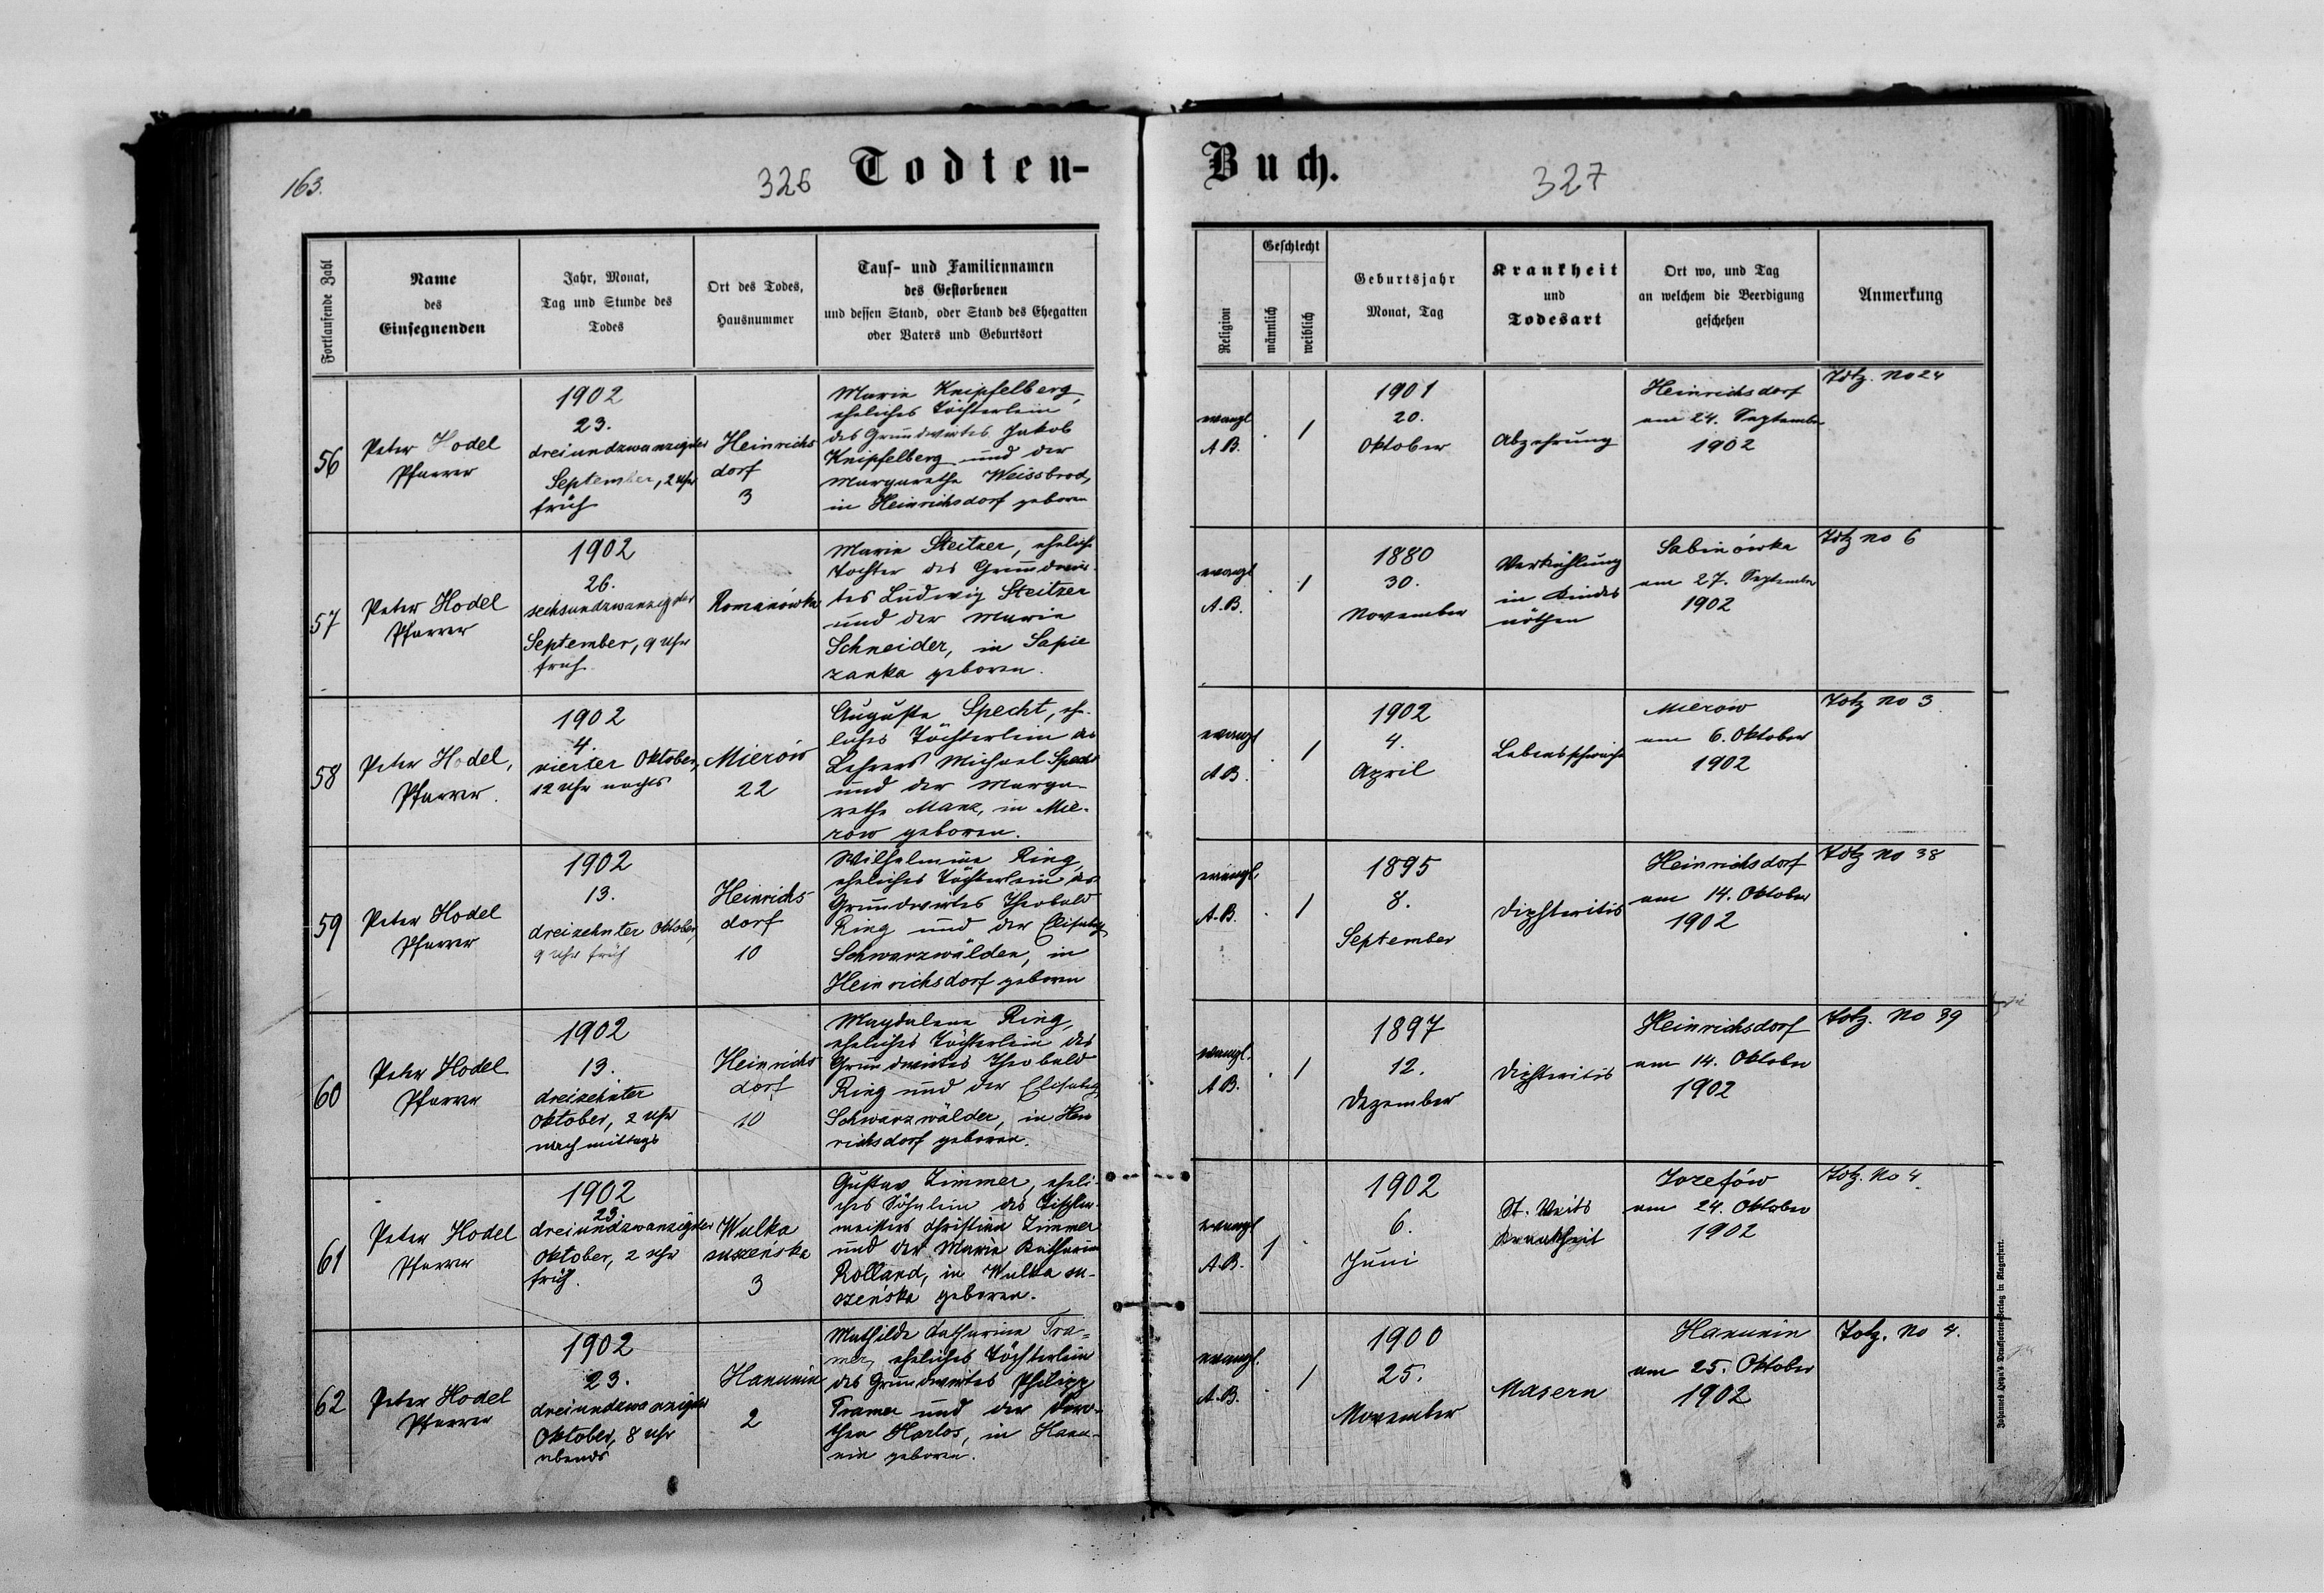 163.
326
Todten-
Fortlaufende Zahl
Name
des
Einsegnenden
Jahr, Monat,
Tag und Stunde des
Todes
Ort des Todes,
Hausnummer
Tauf- und Familiennamen
des Gestorbenen
und dessen Stand, oder Stand des Ehegatten
oder Vaters und Geburtsort
56
Peter Hodel
Pfarrer
1902
23.
dreiundzwanzigster
September, 2 Uhr
früh
Heinrichs
dorf
3
Marie Knipfelberg,
eheliches Töchterlein
des Grundwirtes Jakob
Knipfelberg und der
Margarethe Weissbrod,
in Heinrichsdorf geboren
57
Peter Hodel
Pfarrer
1902
26.
sechsundzwanzigster
September, 9 Uhr
früh.
Romanówka
Marie Steitzer, eheliche
Tochter des Grundwir-
tes Ludwig Steitzer
und der Marie
Schneider, in Sapie
zanka geboren.
58
Peter Hodel,
Pfarrer.
1902
4.
vierter Oktober,
12 Uhr nachts
Mierów
22
Auguste Specht, eh-
liches Töchterlein des
Lehrers Michael Specht
und der Marga-
rethe Manz, in Mie-
rów geboren.
59
Peter Hodel
Pfarrer
1902
13.
dreizehnter Oktober,
9 Uhr früh
Heinrichs-
dorf
10
Wilhelmine Ring,
eheliches Töchterlein des
Grundwirtes Theobald
Ring und der Elisabeth
Schwarzwälder, in
Heinrichsdorf geboren
60
Peter Hodel
Pfarrer
1902
13.
dreizehnter
Oktober, 2 Uhr
nachmittags
Heinrichs
dorf
10
Magdalene Ring,
eheliches Töchterlein des
Grundwirtes Theobald
Ring und der Elisabeth
Schwarzwälder, in Hein
richsdorf geboren.
61
Peter Hodel
Pfarrer
1902
23.
dreiundzwanzigster
Oktober, 2 Uhr
früh.
Wulka
suszeńska
3
Gustav Zimmer, eheli-
ches Söhnlein des Tischler-
meisters Christian Zimmer
und der Marie Katharina
Rolland, in Wulka su-
szeńska geboren.
62
Peter Hodel
Pfarrer
1902
23.
dreiundzwanzigster
Oktober, 8 Uhr
abends
Hanunin
2
Mathilde Katharina Tra=
mer, eheliches Töchterlein
des Grundwirtes Philipp
Tramer und der Doro-
thea Harlos, in Hanu-
nin geboren.
Buch.
327
Religion
Geschlecht
männlich
weiblich
Geburtsjahr
Monat, Tag
Krankheit
und
Todesart
Ort wo, und Tag
an welchem die Beerdigung
geschehen
Anmerkung
evangl
A.B.
. 1
1901
20.
Oktober
Abzehrung
Heinrichsdorf
am 24. September
1902
Totz. No 24
evangl
A.B.
. 1
1880
30.
November
Verkühlung
in Kindes
nöthen
Sabinówka
am 27. September
1902
Totz No 6
evangl
A.B.
. 1
1902
4.
April
Lebensschwäche
Mierów
am 6. Oktober
1902
Totz No 3
evangl.
A.B.
. 1
1895
8.
September
Diphteritis
Heinrichsdorf
am 14. Oktober
1902
Totz No 38
evangl.
A.B.
. 1
1897
12.
Dezember
Diphteritis
Heinrichsdorf
am 14. Oktober
1902
Totz. No 39
evangl
A.B.
1 .
1902
6.
Juni
St. Veits
Krankheit
Jozefów
am 24. Oktober
1902
Totz. No 4
evangl.
A.B.
. 1
1900
25.
November
Masern
Hanunin
am 25. Oktober
1902
Totz. No 4.